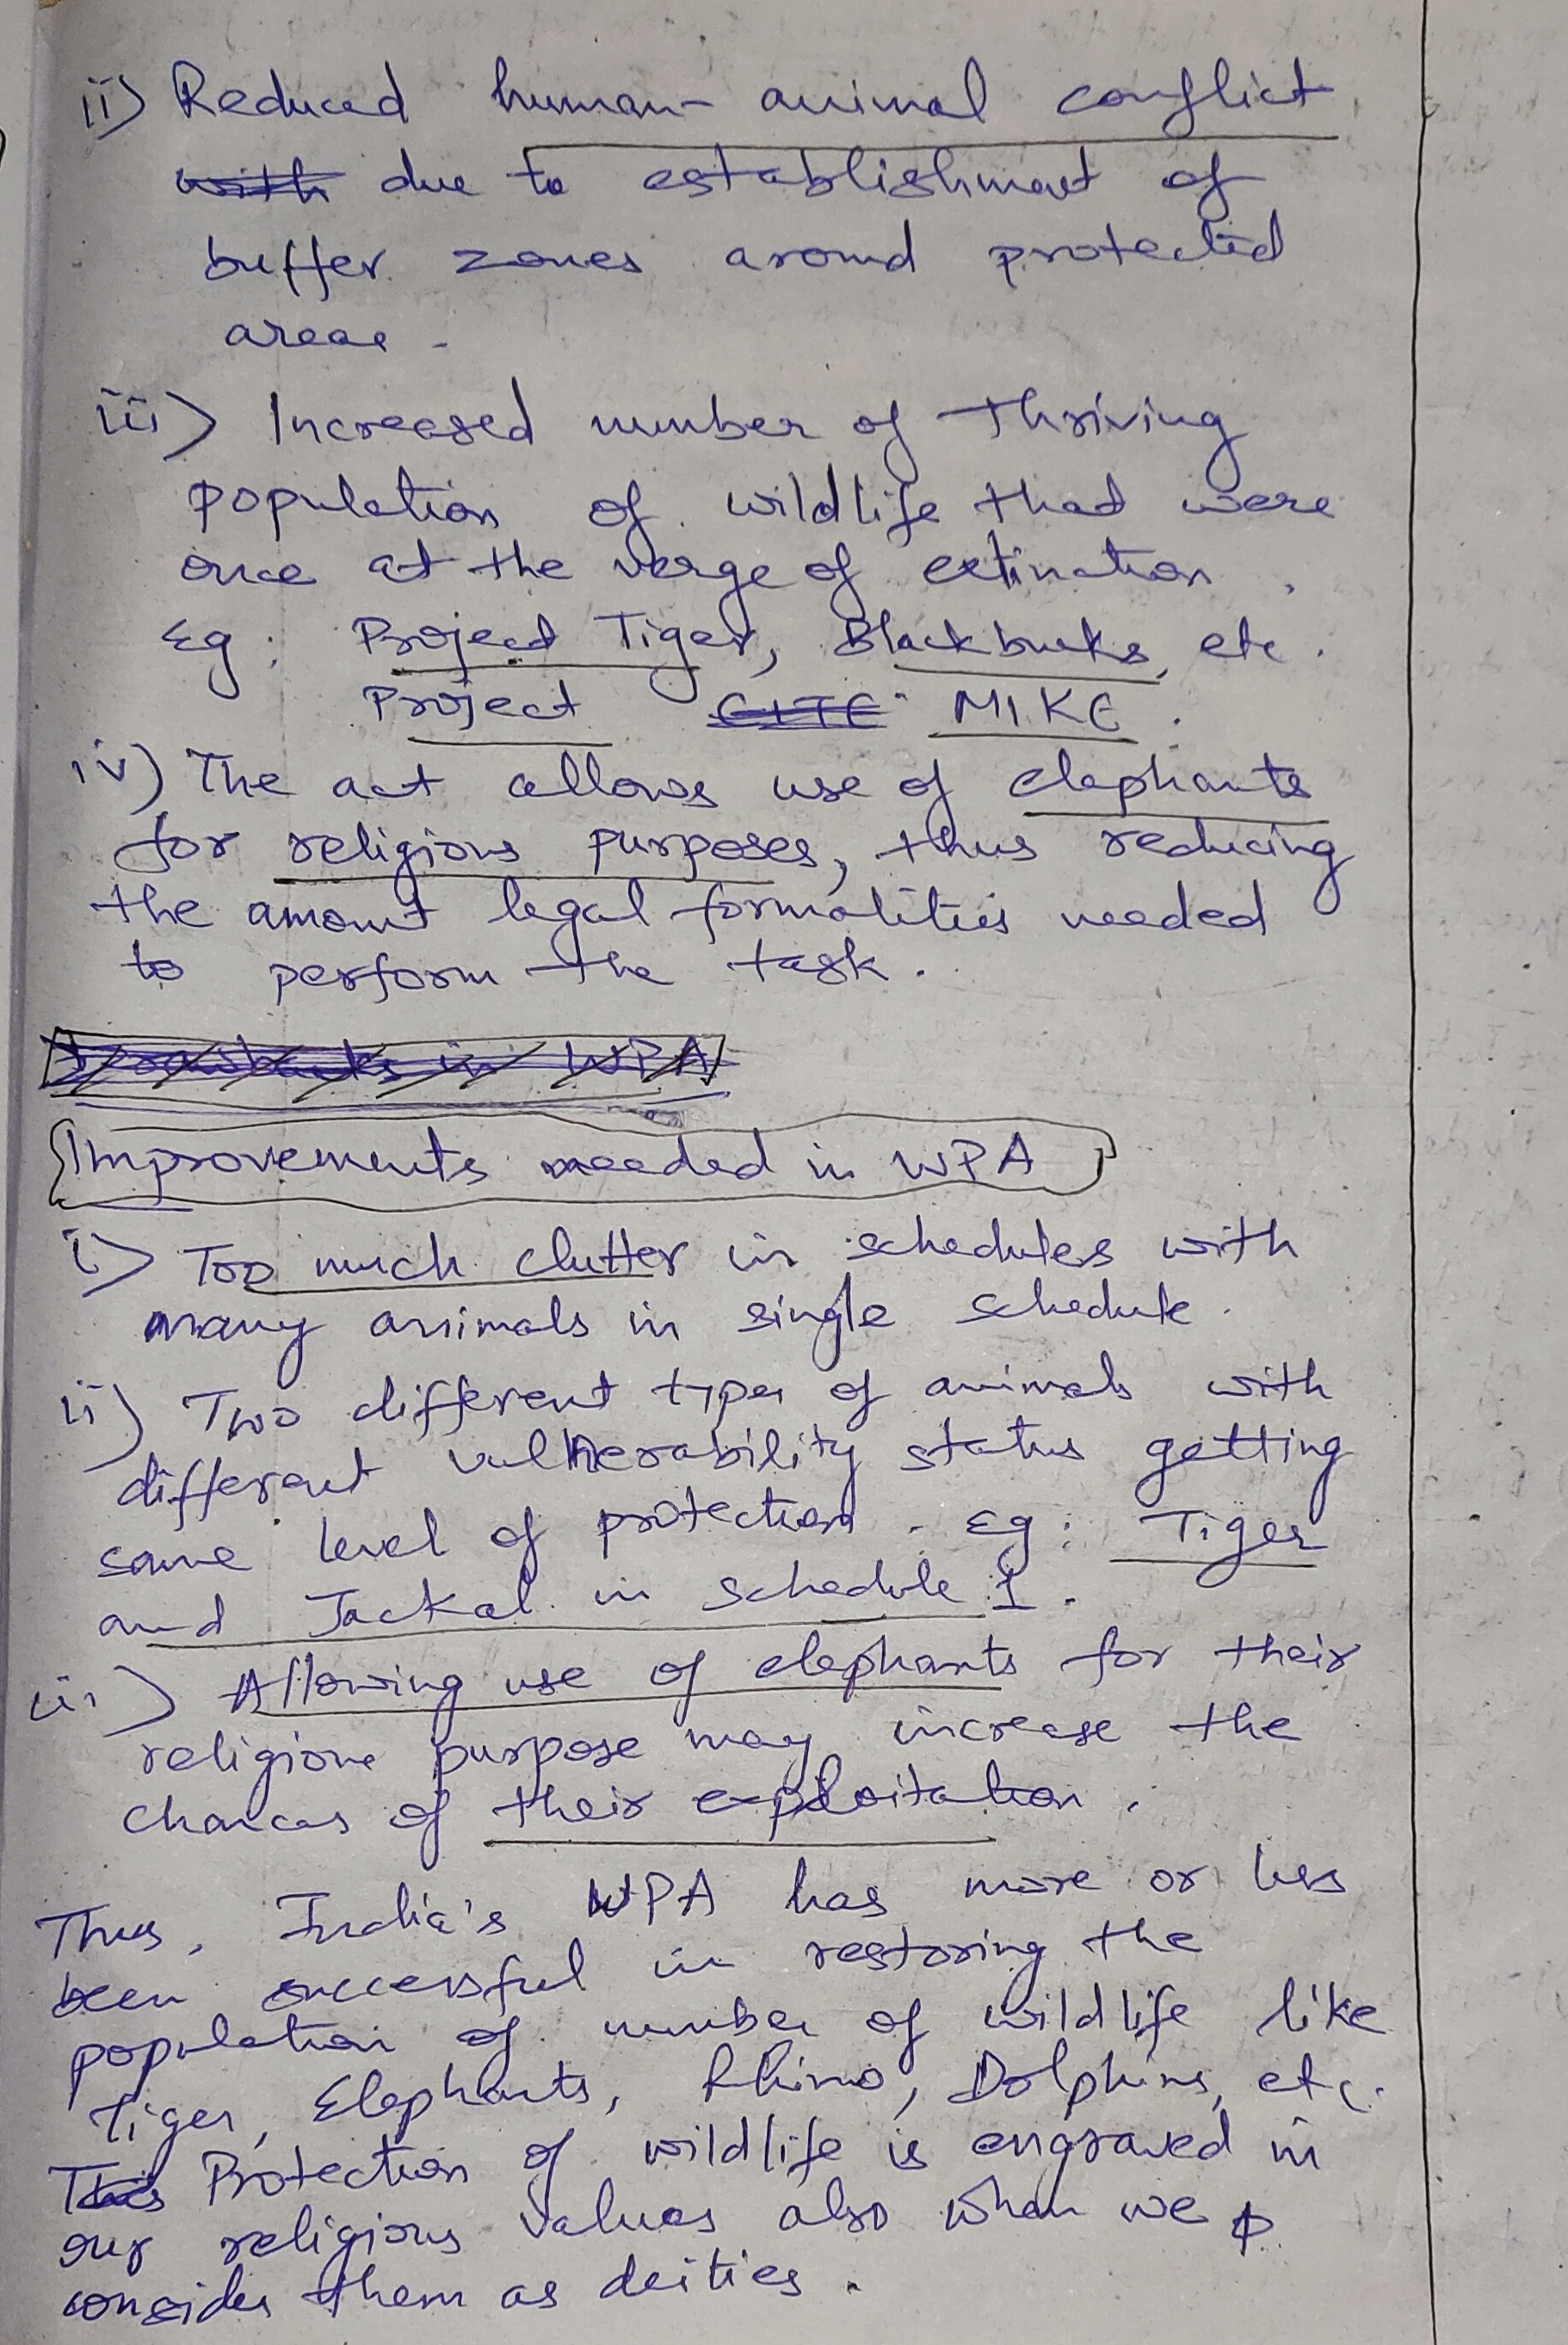 ii) Reduced human-animal conflict
with due to establishment of
buffer zones around protected
areas.
iii) Increased number of thriving
population of wildlife that were
once at the verge of extinction.
Eg: Project Tiger, Blackbucks, etc.
Project CITE MIKE.
iv) The act allows use of elephants
for religious purposes, thus reducing
the amount legal formalities needed
to perform the task.
Drawbacks in WPA
Improvements needed in WPA
i) Too much clutter in schedules with
many animals in single schedule.
ii) Two different types of animals with
different vulnerability status getting
same level of protection. Eg: Tiger
and Jackal in schedule I.
iii) Allowing use of elephants for their
religious purpose may increase the
chances of their exploitation.
Thus, India's WPA has more or less
been successful in restoring the
population of number of wildlife like
Tiger, Elephants, Rhino, Dolphins, etc.
This Protection of wildlife is engraved in
our religious values also when we
consider them as deities.